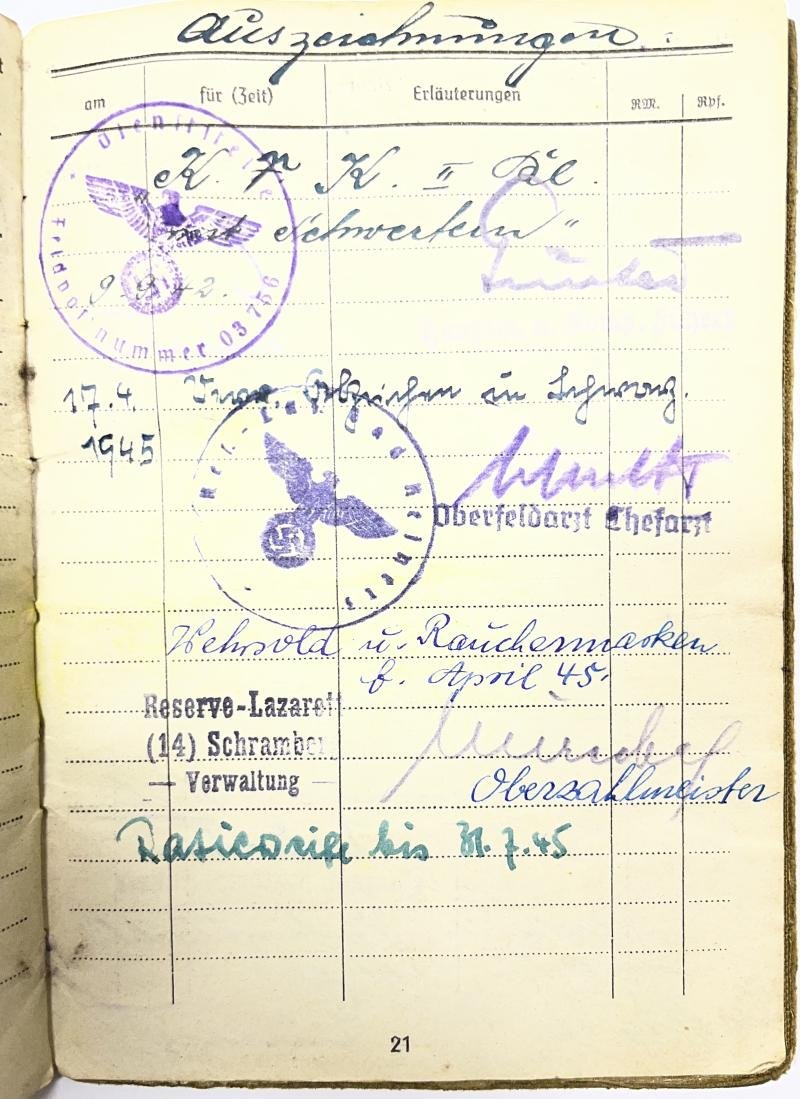 Auszeichnungen.
am für (Zeit) Erläuterungen RM. Rpf.
K. V. K. II Kl.
"mit Schwertern"
9.9.42.
Dienststelle
Feldpostnummer 03756
17.4. Verw. Abzeichen in Schwarz.
1945
Oberfeldarzt Chefarzt
Wehrsold u. Rauchermarken
f. April 45.
Reserve-Lazarett
(14) Schramberg
— Verwaltung —
Oberzahlmeister
bis 31.7.45
21